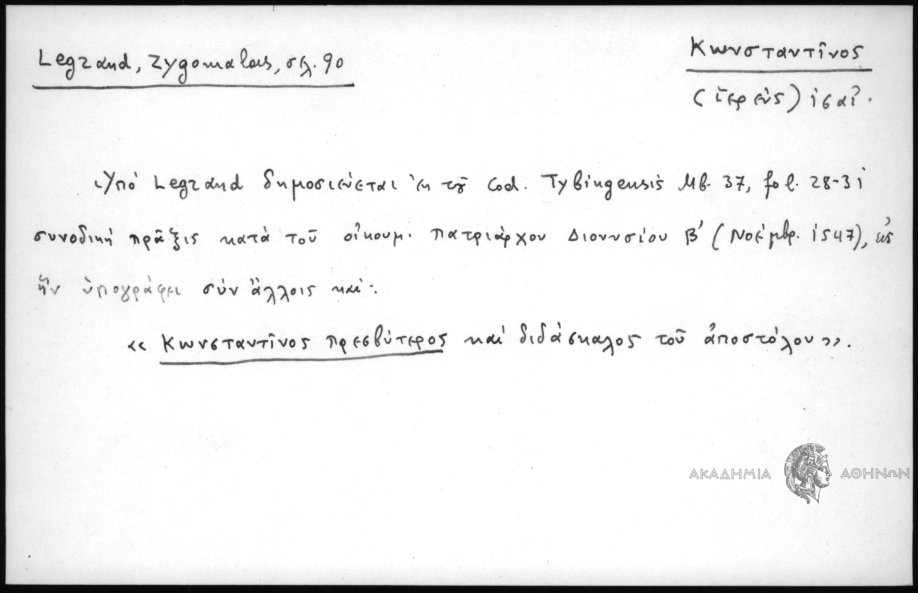 Legrand, Zygomalas, σελ. 90
Κωνσταντῖνος
(ἱερεὺς) ις αἰ.
Ὑπὸ Legrand δημοσιεύεται ἐκ τοῦ Cod. Tybingensis Mb. 37, fol. 28-31
συνοδικὴ πρᾶξις κατὰ τοῦ οἰκουμ. πατριάρχου Διονυσίου Β' (Νοέμβρ. 1547), εἰς
ἣν ὑπογράφει σὺν ἄλλοις καὶ:
« Κωνσταντῖνος πρεσβύτερος καὶ διδάσκαλος τοῦ ἀποστόλου».
ΑΚΑΔΗΜΙΑ ΑΘΗΝΩΝ